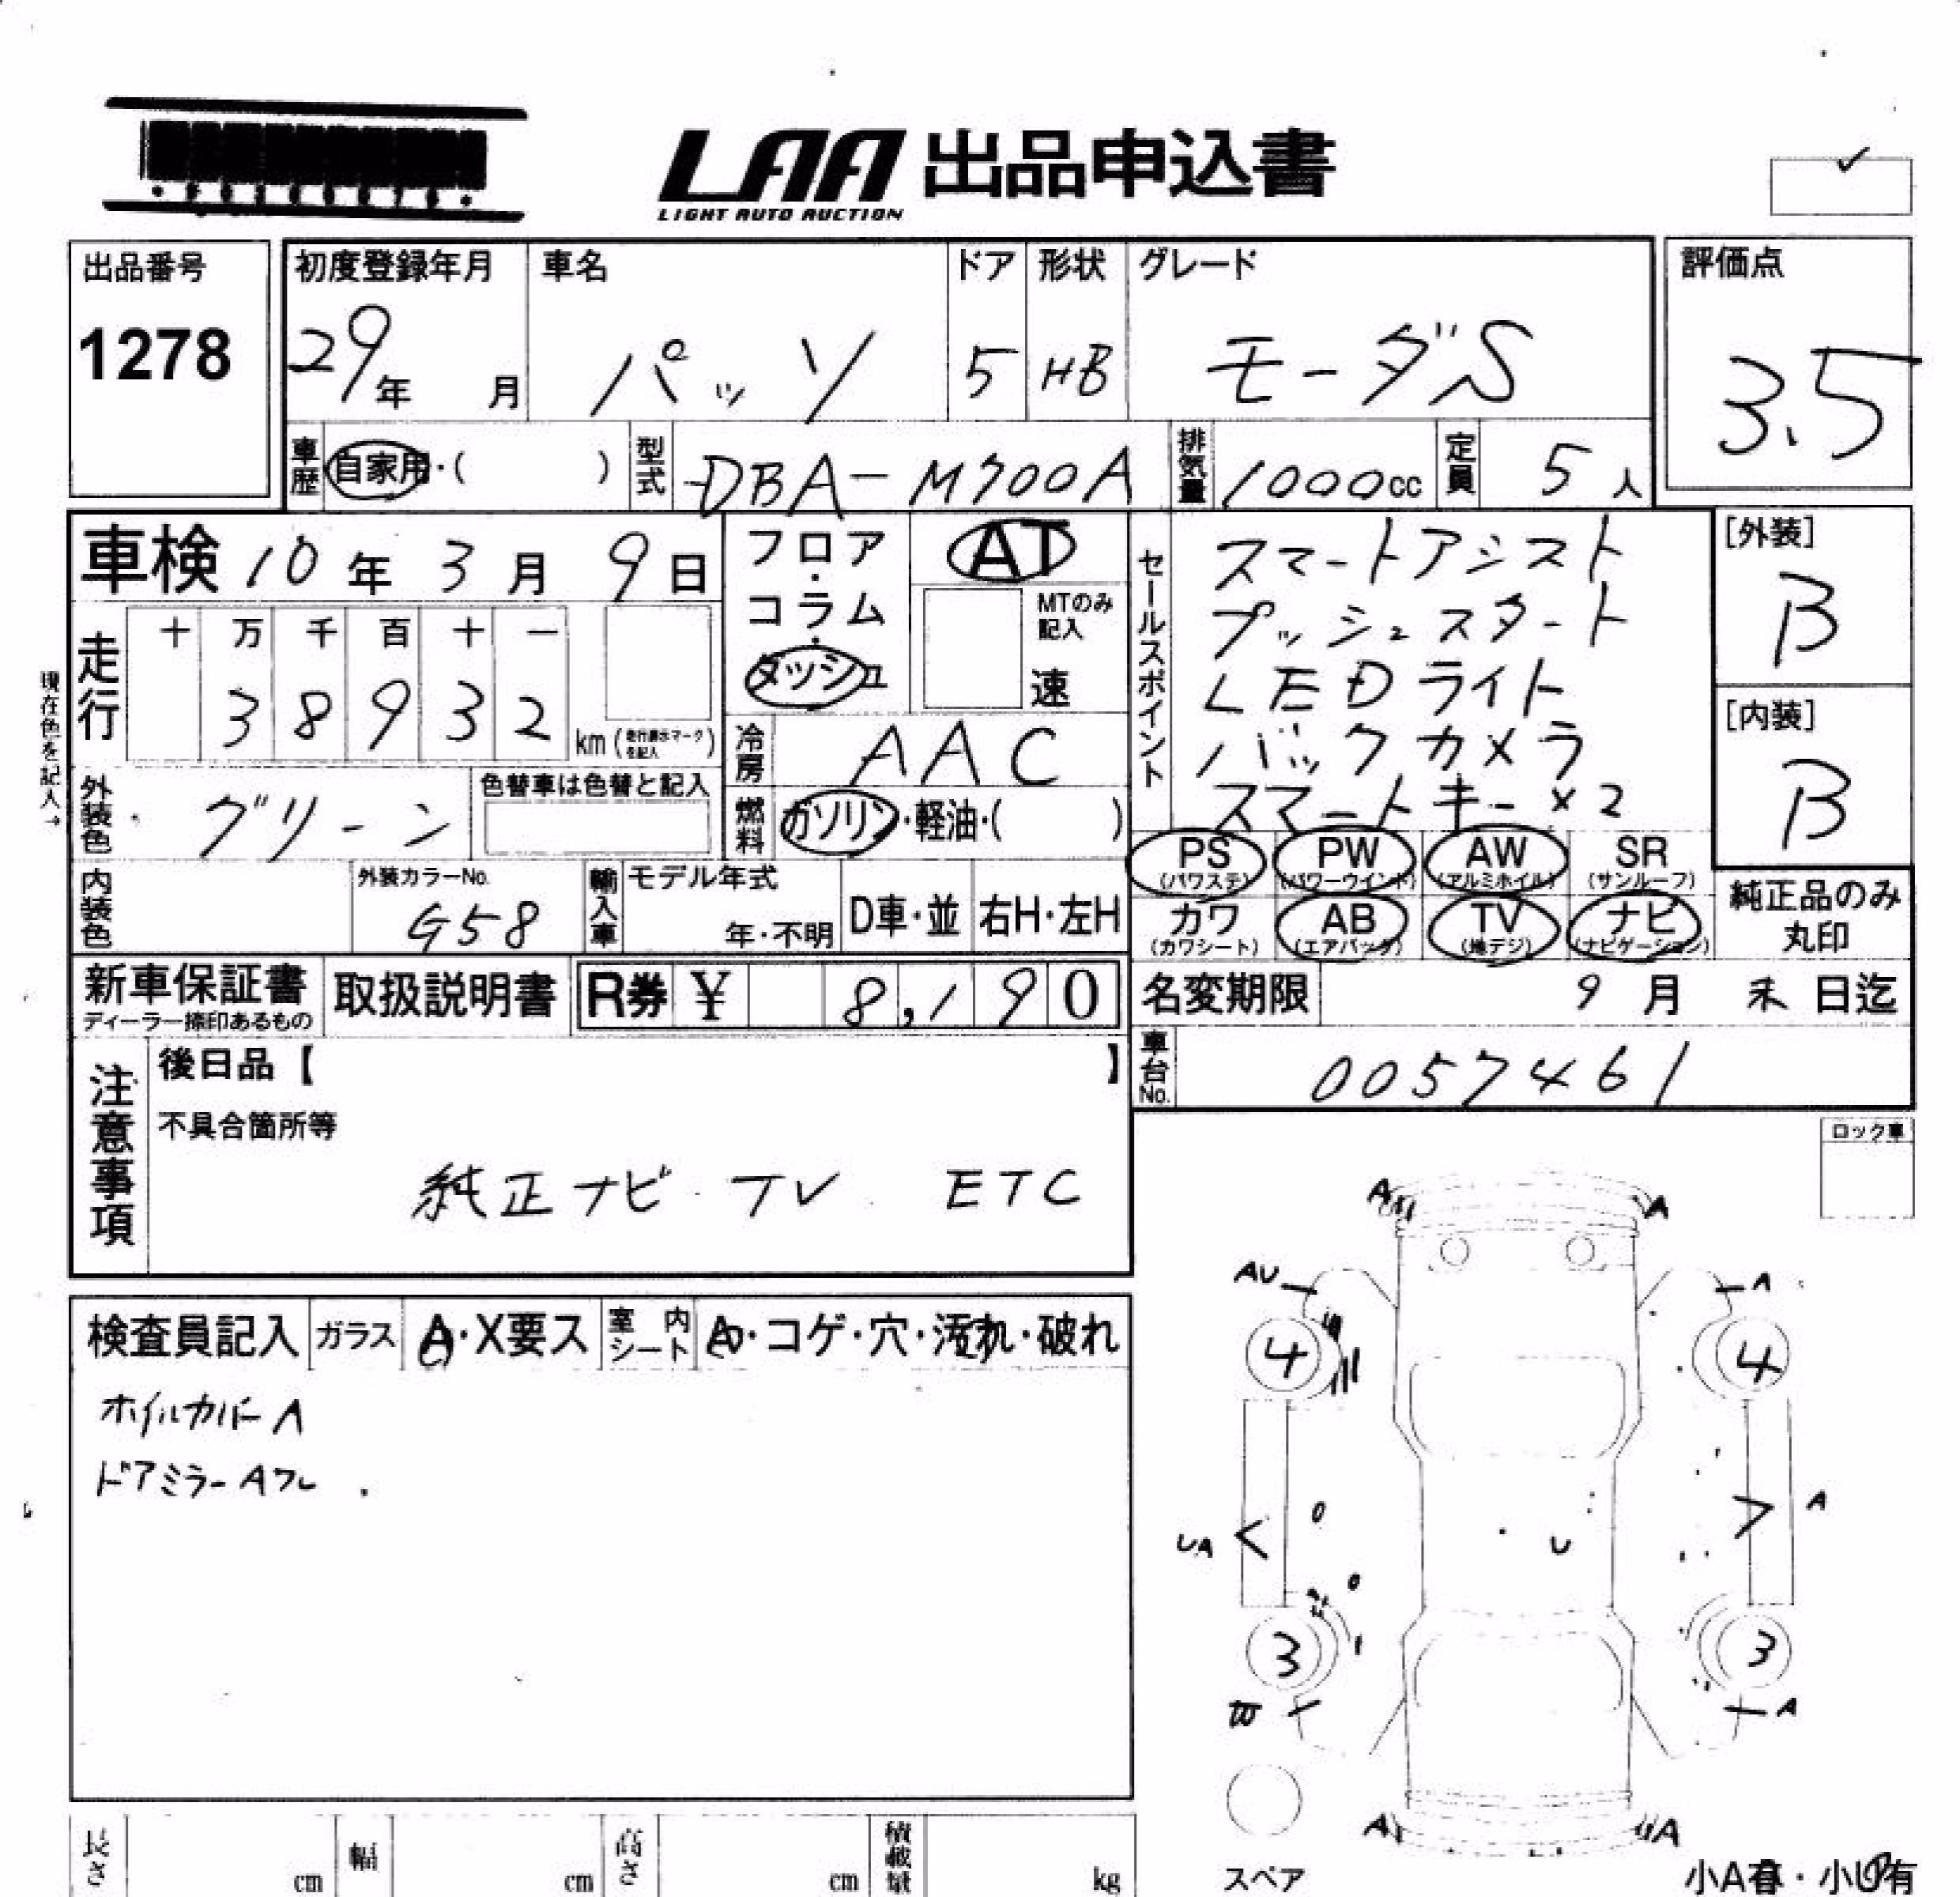 LAA 出品申込書
LIGHT AUTO AUCTION
出品番号
1278
初度登録年月
29年 月
車名
パッソ
ドア
5
形状
HB
グレード
モーダS
評価点
3.5
車歴
自家用・( )
型式
DBA-M700A
排気量
1000cc
定員
5人
車検 10年 3月 9日
フロア・コラム・ダッシュ
AT
MTのみ記入
速
走行
十 万 千 百 十 一
3 8 9 3 2 km
現在色を記入→
冷房
AAC
燃料
ガソリン・軽油・( )
外装色
グリーン
色替車は色替と記入
内装色
外装カラーNo.
G58
輸入車
モデル年式
年・不明
D車・並
右H・左H
セールスポイント
スマートアシスト
プッシュスタート
LEDライト
バックカメラ
スマートキー×2
[外装]
B
[内装]
B
PS (パワステ)
PW (パワーウインド)
AW (アルミホイル)
SR (サンルーフ)
カワ (カワシート)
AB (エアバッグ)
TV (地デジ)
ナビ (ナビゲーション)
純正品のみ丸印
新車保証書
ディーラー捺印あるもの
取扱説明書
R券 ¥ 8,190
名変期限 9月 末日迄
車台No.
0057461
注意事項
後日品【 】
不具合箇所等
純正ナビ TV ETC
ロック車
検査員記入
ガラス
A・X要ス
室内シート
・コゲ・穴・汚れ・破れ
ホイルカバー A
ドアミラー Aフレ
A
A
AU
A
4
4
UA
U
A
3
3
A
A
A
スペア
小A有・小U有
長さ cm
幅 cm
高さ cm
積載量 kg